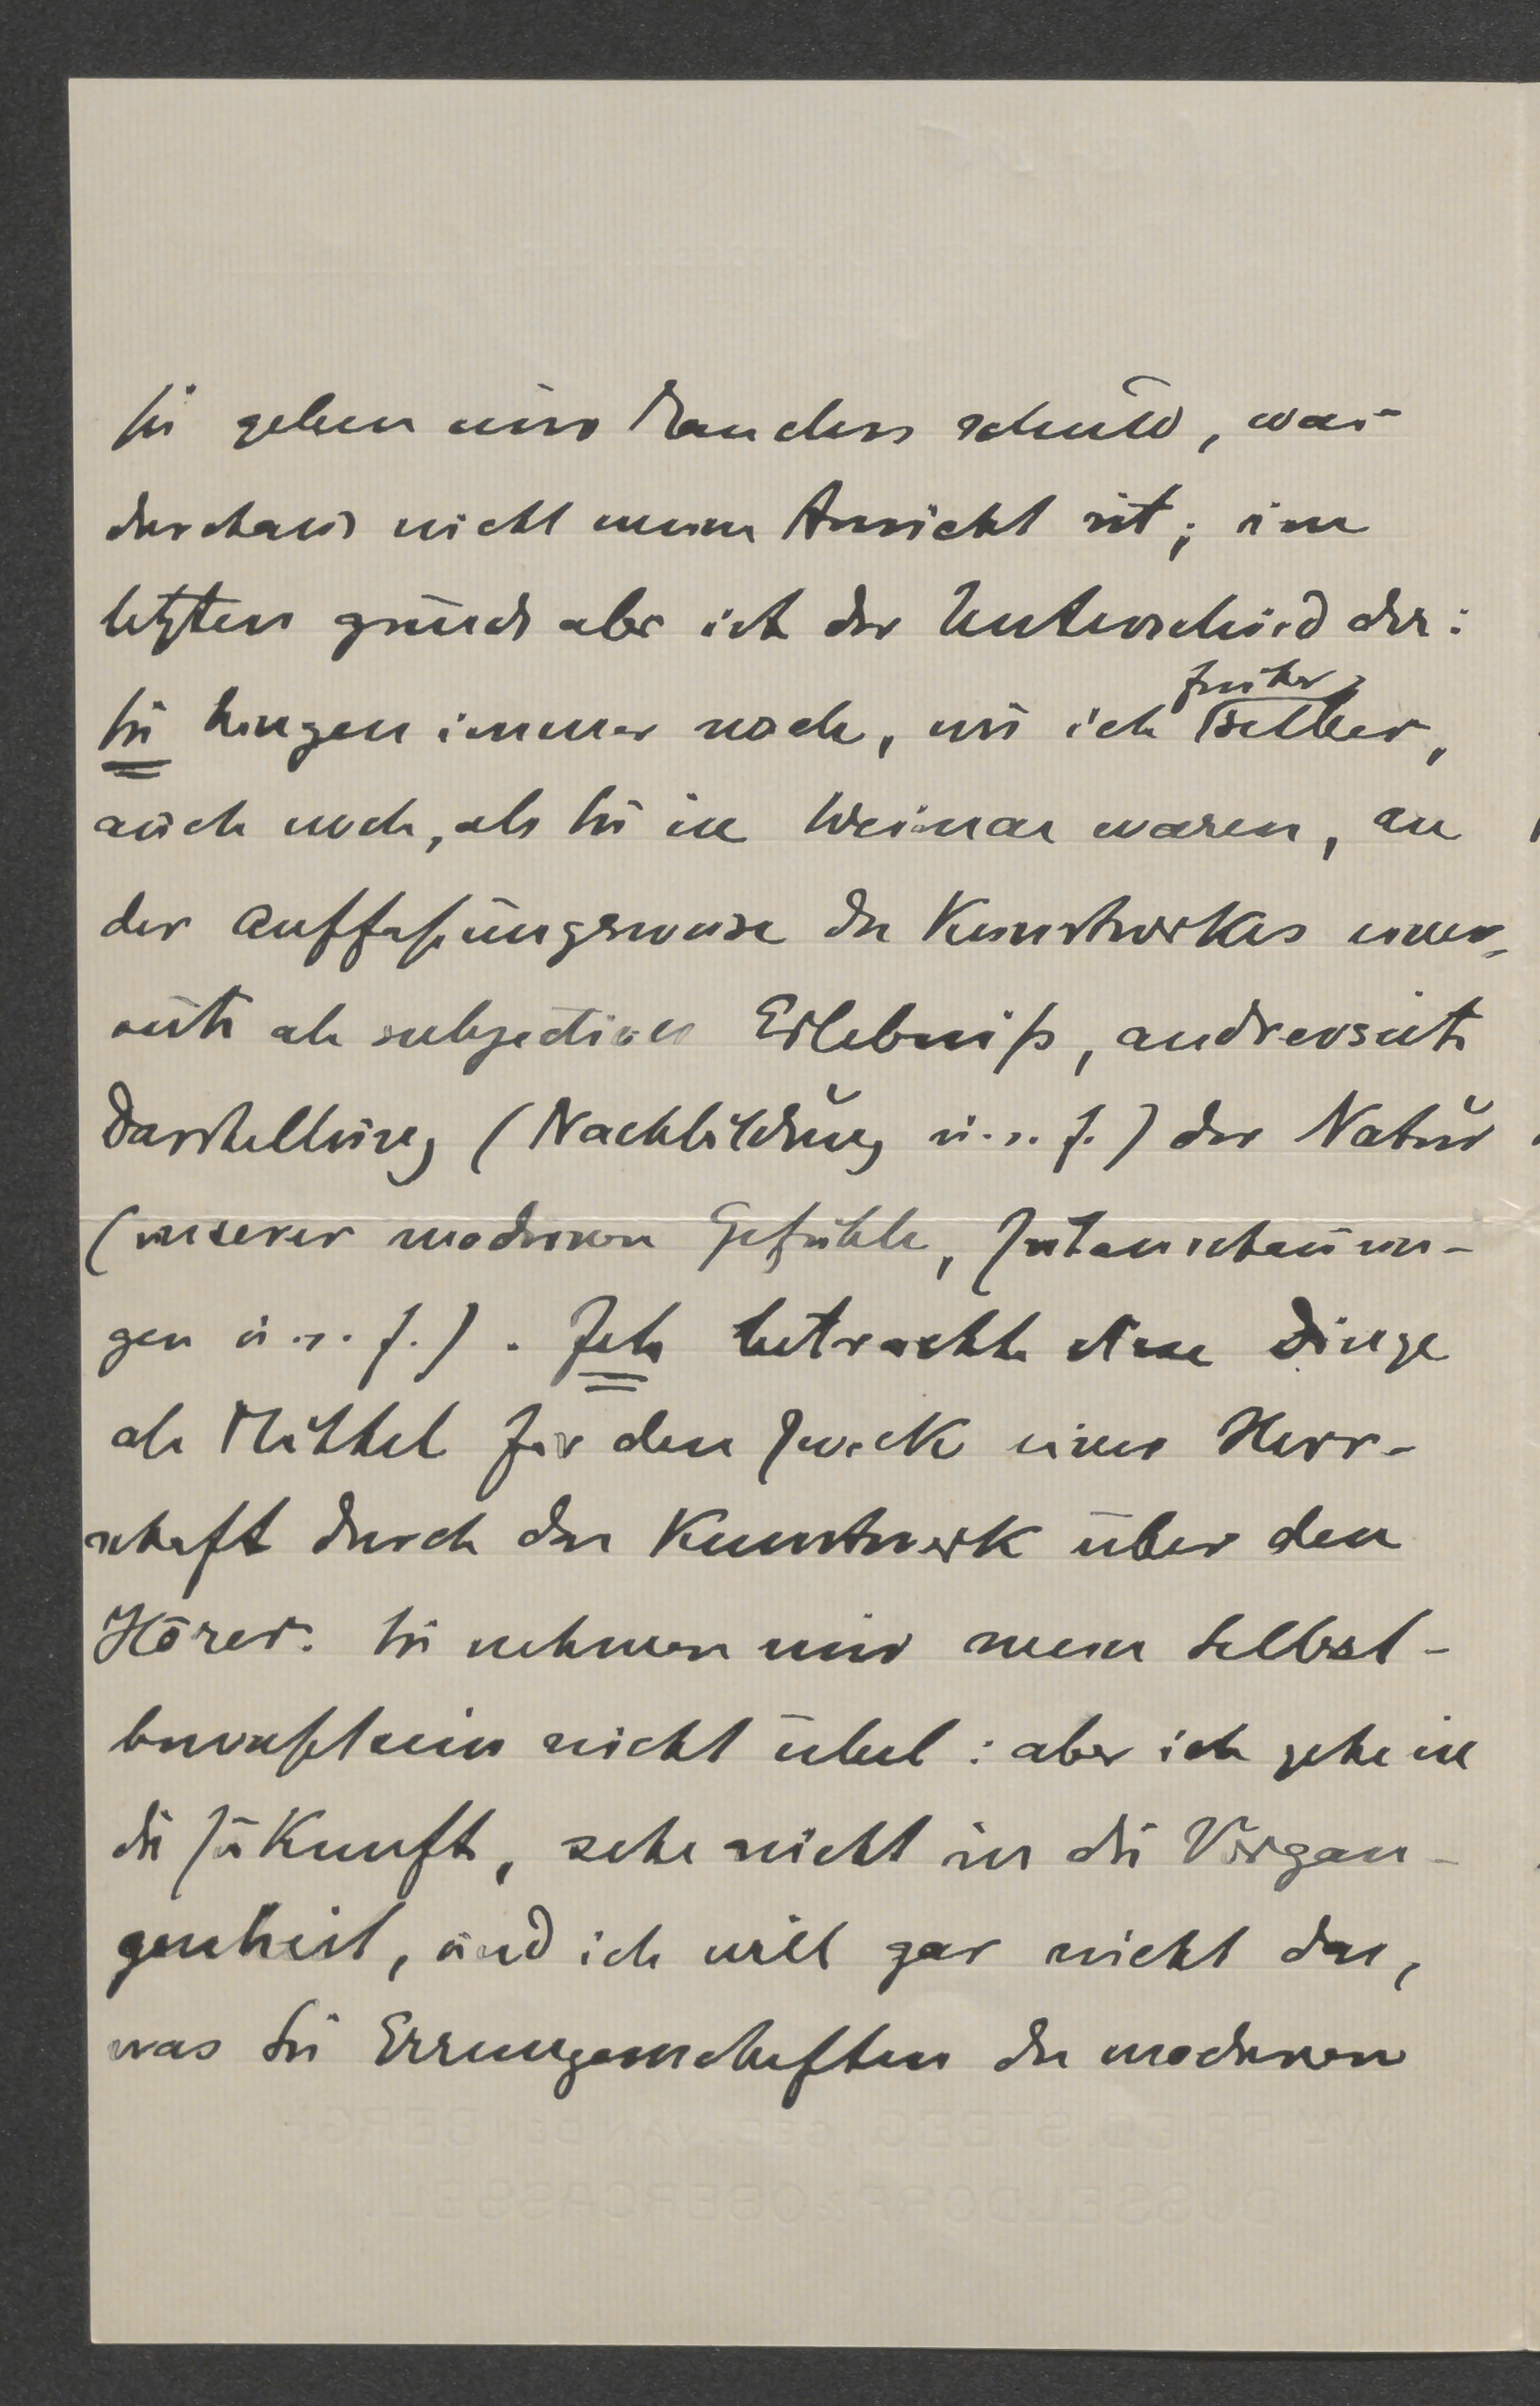 Sie geben mir Manches schuld, was
durchaus nicht meine Ansicht ist; im
letzten grunde aber ist der Unterschied der:
Sie hängen immer noch, wie ich früher selber,
auch noch, als Sie in Weimar waren, an
der Auffaßungsweise des Kunstwerkes einer-
seits als subjectives Erlebniß, andrerseits
Darstellung (Nachbildung u.s.f.) der Natur
(unserer modernen Gefühle, Zeitanschauun-
gen u.s.f.). Ich betrachte diese Dinge
als Mittel für den Zweck einer Herr-
schaft durch das Kunstwerk über den
Hörer. Sie nehmen mir mein Selbst-
bewußtsein nicht übel: aber ich gehe in
die Zukunft, sehe nicht in die Vergan-
genheit, und ich will gar nicht das,
was Sie Errungenschaften der modernen